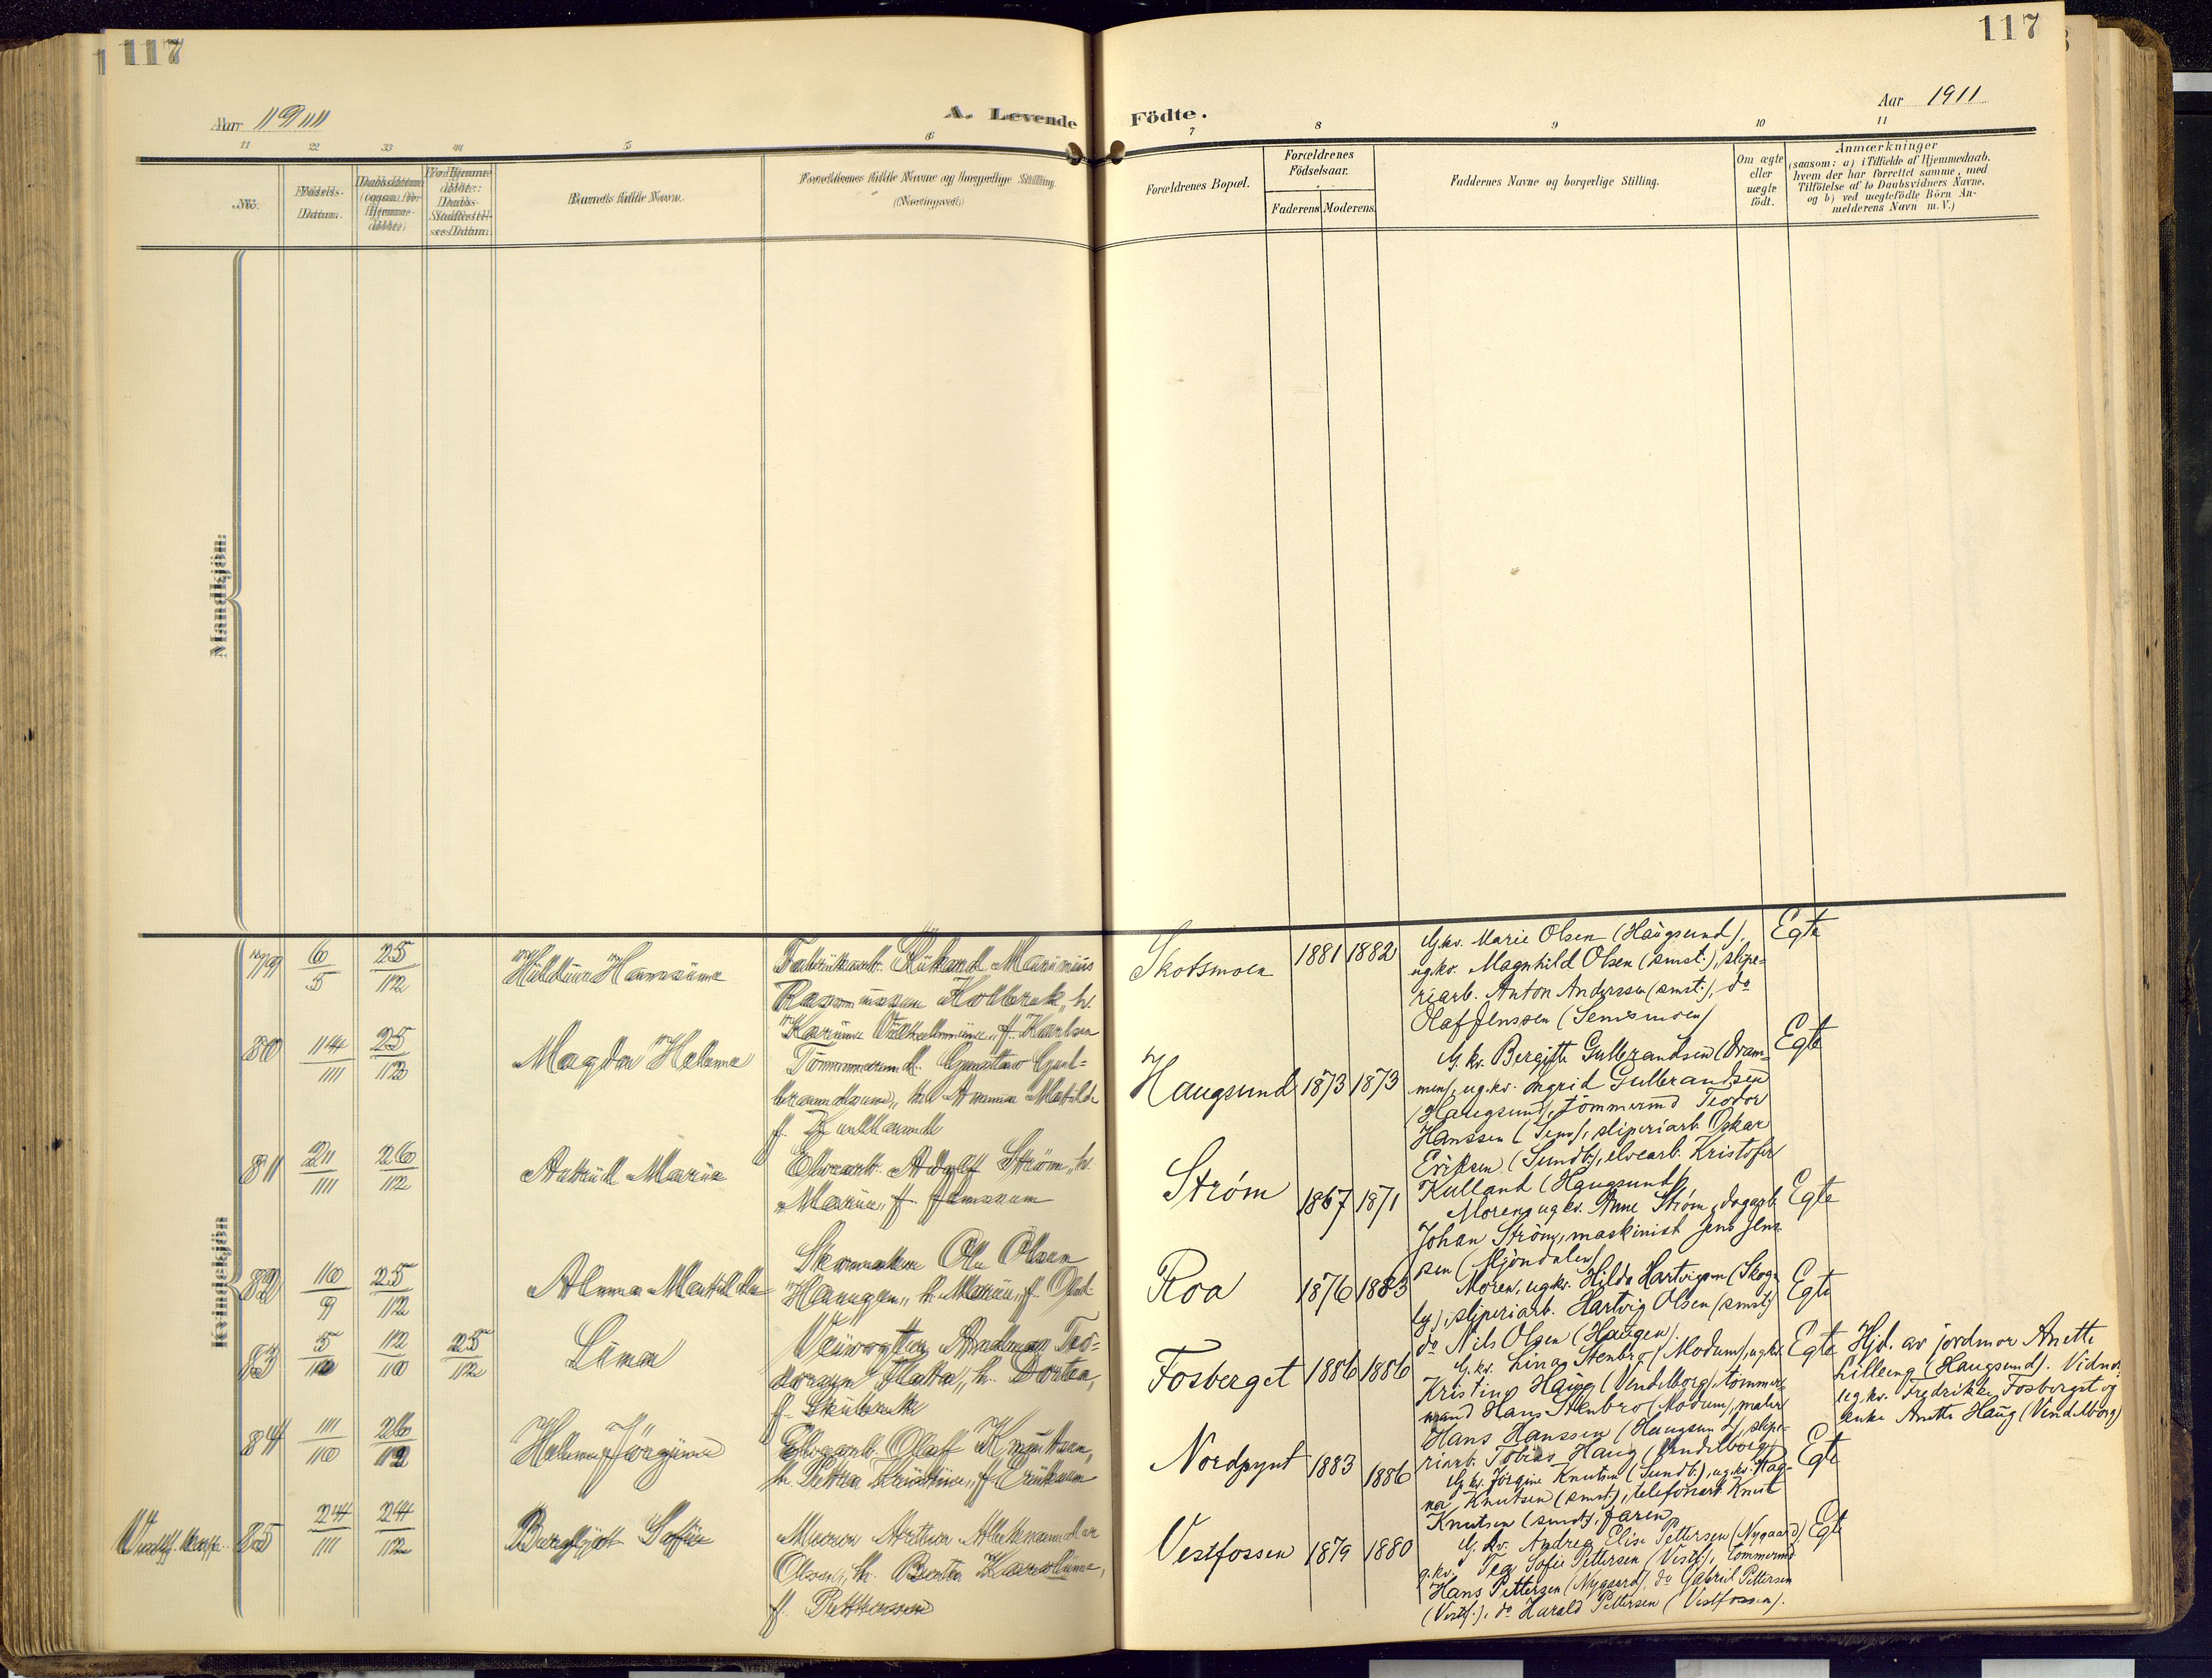 117
117
Aar 1911
A. Levende
Födte.
Aar 1911
1 2 3 4 5 6
7 8 9 10 11
No.
Födsels-
Datum.
Daabsdatum
Barnets fulde Navn.
Forældrenes fulde Navne og borgerlige Stilling
Forældrenes Bopæl.
Forældrenes
Födselsaar.
Faderens
Moderens
Faddernes Navne og borgerlige Stilling.
Om ægte
eller
uægte
födt.
Anmærkninger
(saasom: a) i Tilfælde af Hjemmedaab,
hvem der har forrettet samme, med
Tilföielse af to Daabsvidners Navne,
og b) ved uægtefödte Börn An-
melderens Navn m. V.)
Mandkjön:
Kvindekjön
79
6/5
25/12
Hansine
Fabrikarb. Rikard Marinius
Rasmussen Kolbrek, h.
f. Karlsen
Skotsmoen
1881
1882
G.kv. Marie Olsen (Haugsund),
ug.kv. Magnhild Olsen (smst.), slipe-
riarb. Anton Anderssen (smst.), do
Olaf Jenssen (Semsmoen)
Egte
80
14/11
25/12
Magda Helene
Tömmermd. Gustav Gul-
brandsen, h. Anna Matilde
f. Kulland
Haugsund
1873
1873
G.kv. Bergitte Gulbrandsen (Dram-
men), ug.kv. Ingrid Gulbrandsen
(Haugsund), tömmermd Teodor
Hanssen (Sem), sliperiarb. Oskar
Eriksen (Sundb.), elvearb. Kristofer
Kulland (Haugsund)
Egte
81
21/11
26/12
Astrid Marie
Elvearb. Adolf Ström, h.
Marie, f. Jenssen
Ström
1867
1871
Moren, ug.kv. Anne Ström, dagarb.
Johan Ström, maskinist Jens Jens-
sen (Mjöndalen)
Egte
82
10/9
25/12
Alma Matilde
Skomaker Ole Olsen
Haugen, h. Marie, f. Ols
Roa
1876
1883
Moren, ugkv. Hilda Hartvigsen (Skog-
ly), sliperiarb. Hartvig Olsen (smst)
do Nils Olsen (Haugen).
Egte
83
5/10
12/10
25/12
Lina
Veivogter Andreas Teo-
dorsen Flata, h. Dortea,
Fosberget
1886
1886
G.kv. Lina Stenbro (Modum), ug.kv.
Kristine Haug (Vendelborg), tömmer-
mand Hans Stenbro (Modum), maler
Hans Hanssen (Haugsund), slipe-
riarb. Tobias Haug (Vendelborg)
Egte
Hjd. av jordmor Anette
Lilleeng (Haugsund). Vidner:
ug.kv. Fredrikke Fosberget og
enke Anette Haug (Vendelborg)
84
11/10
26/12
Helene Jörgine
Elvearb. Olaf Knutsen,
h. Petra Kristine, f. Eriksen
Nordpynt
1883
1886
G.kv. Jörgine Knutsen (Sundb.), ug.kv. Rag-
na Knutsen (smst.), telefonarb. Knut
Knutsen (smst), faren
Egte
85
24/11
24/12
Borghjot Sofie
Murer Artur Aleksander
Olsen, h. Berta Karoline,
f. Pettersen
Vestfossen
1879
1880
G.kv. Andrea Elise Pettersen (Nygaard)
g.kv. Tea Sofie Pettersen (Vestf.), tömmermd
Hans Pettersen (Nygaard), do Gabriel Pettersen
(Vestf.), do Harald Pettersen (Vestfossen).
Egte